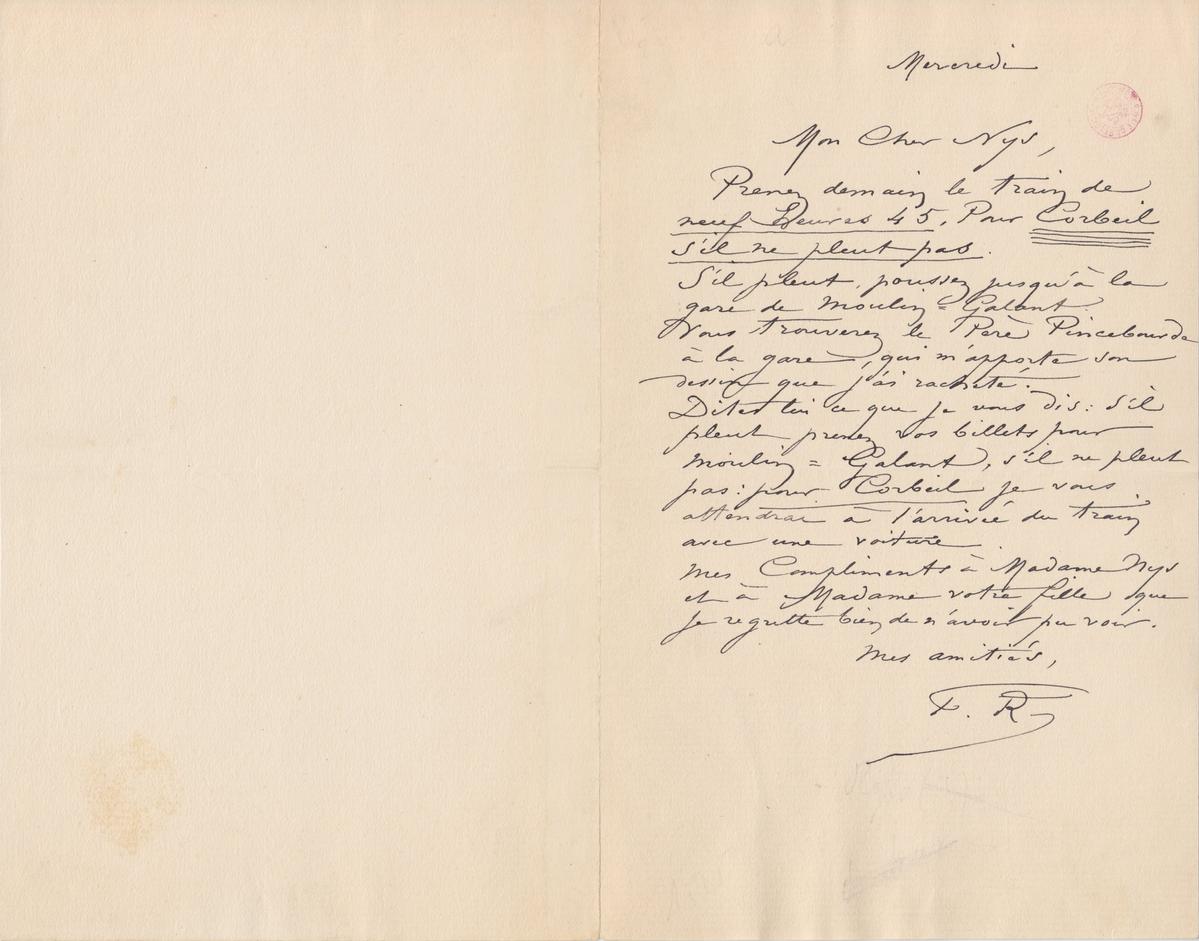 Mercredi
Mon Cher Nys,
Prenez demain le train de
neuf heures 45. Pour Corbeil
s'il ne pleut pas.
S'il pleut, poussez jusqu'à la
gare de Moulin=Galant.
Vous trouverez le Père Pincebourde
à la gare, qui m'apporte son
dessin que j'ai racheté.
Dites lui ce que je vous dis: s'il
pleut prenez vos billets pour
Moulin=Galant, s'il ne pleut
pas: pour Corbeil je vous
attendrai à l'arrivée du train
avec une voiture.
Mes Compliments à Madame Nys
et à Madame votre fille que
je regrette bien de n'avoir pu voir.
Mes amitiés,
F. R